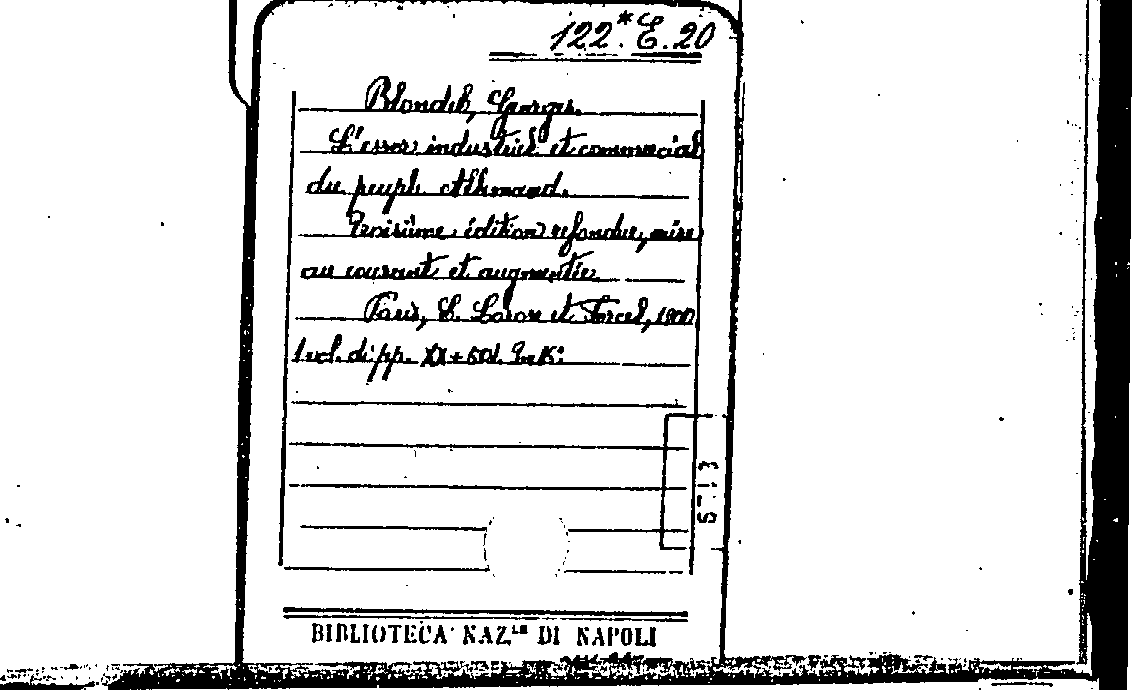 122.* E. 20
Blondel, Georges.
L'essor industriel et commercial
du peuple Allemand.
Troisième édition refondue, mise
au courant et augmentée
Paris, L. Larose et Forcel, 1900
1 vol. di pp. XX+501. In 8º:
BIBLIOTECA NAZ.LE DI NAPOLI